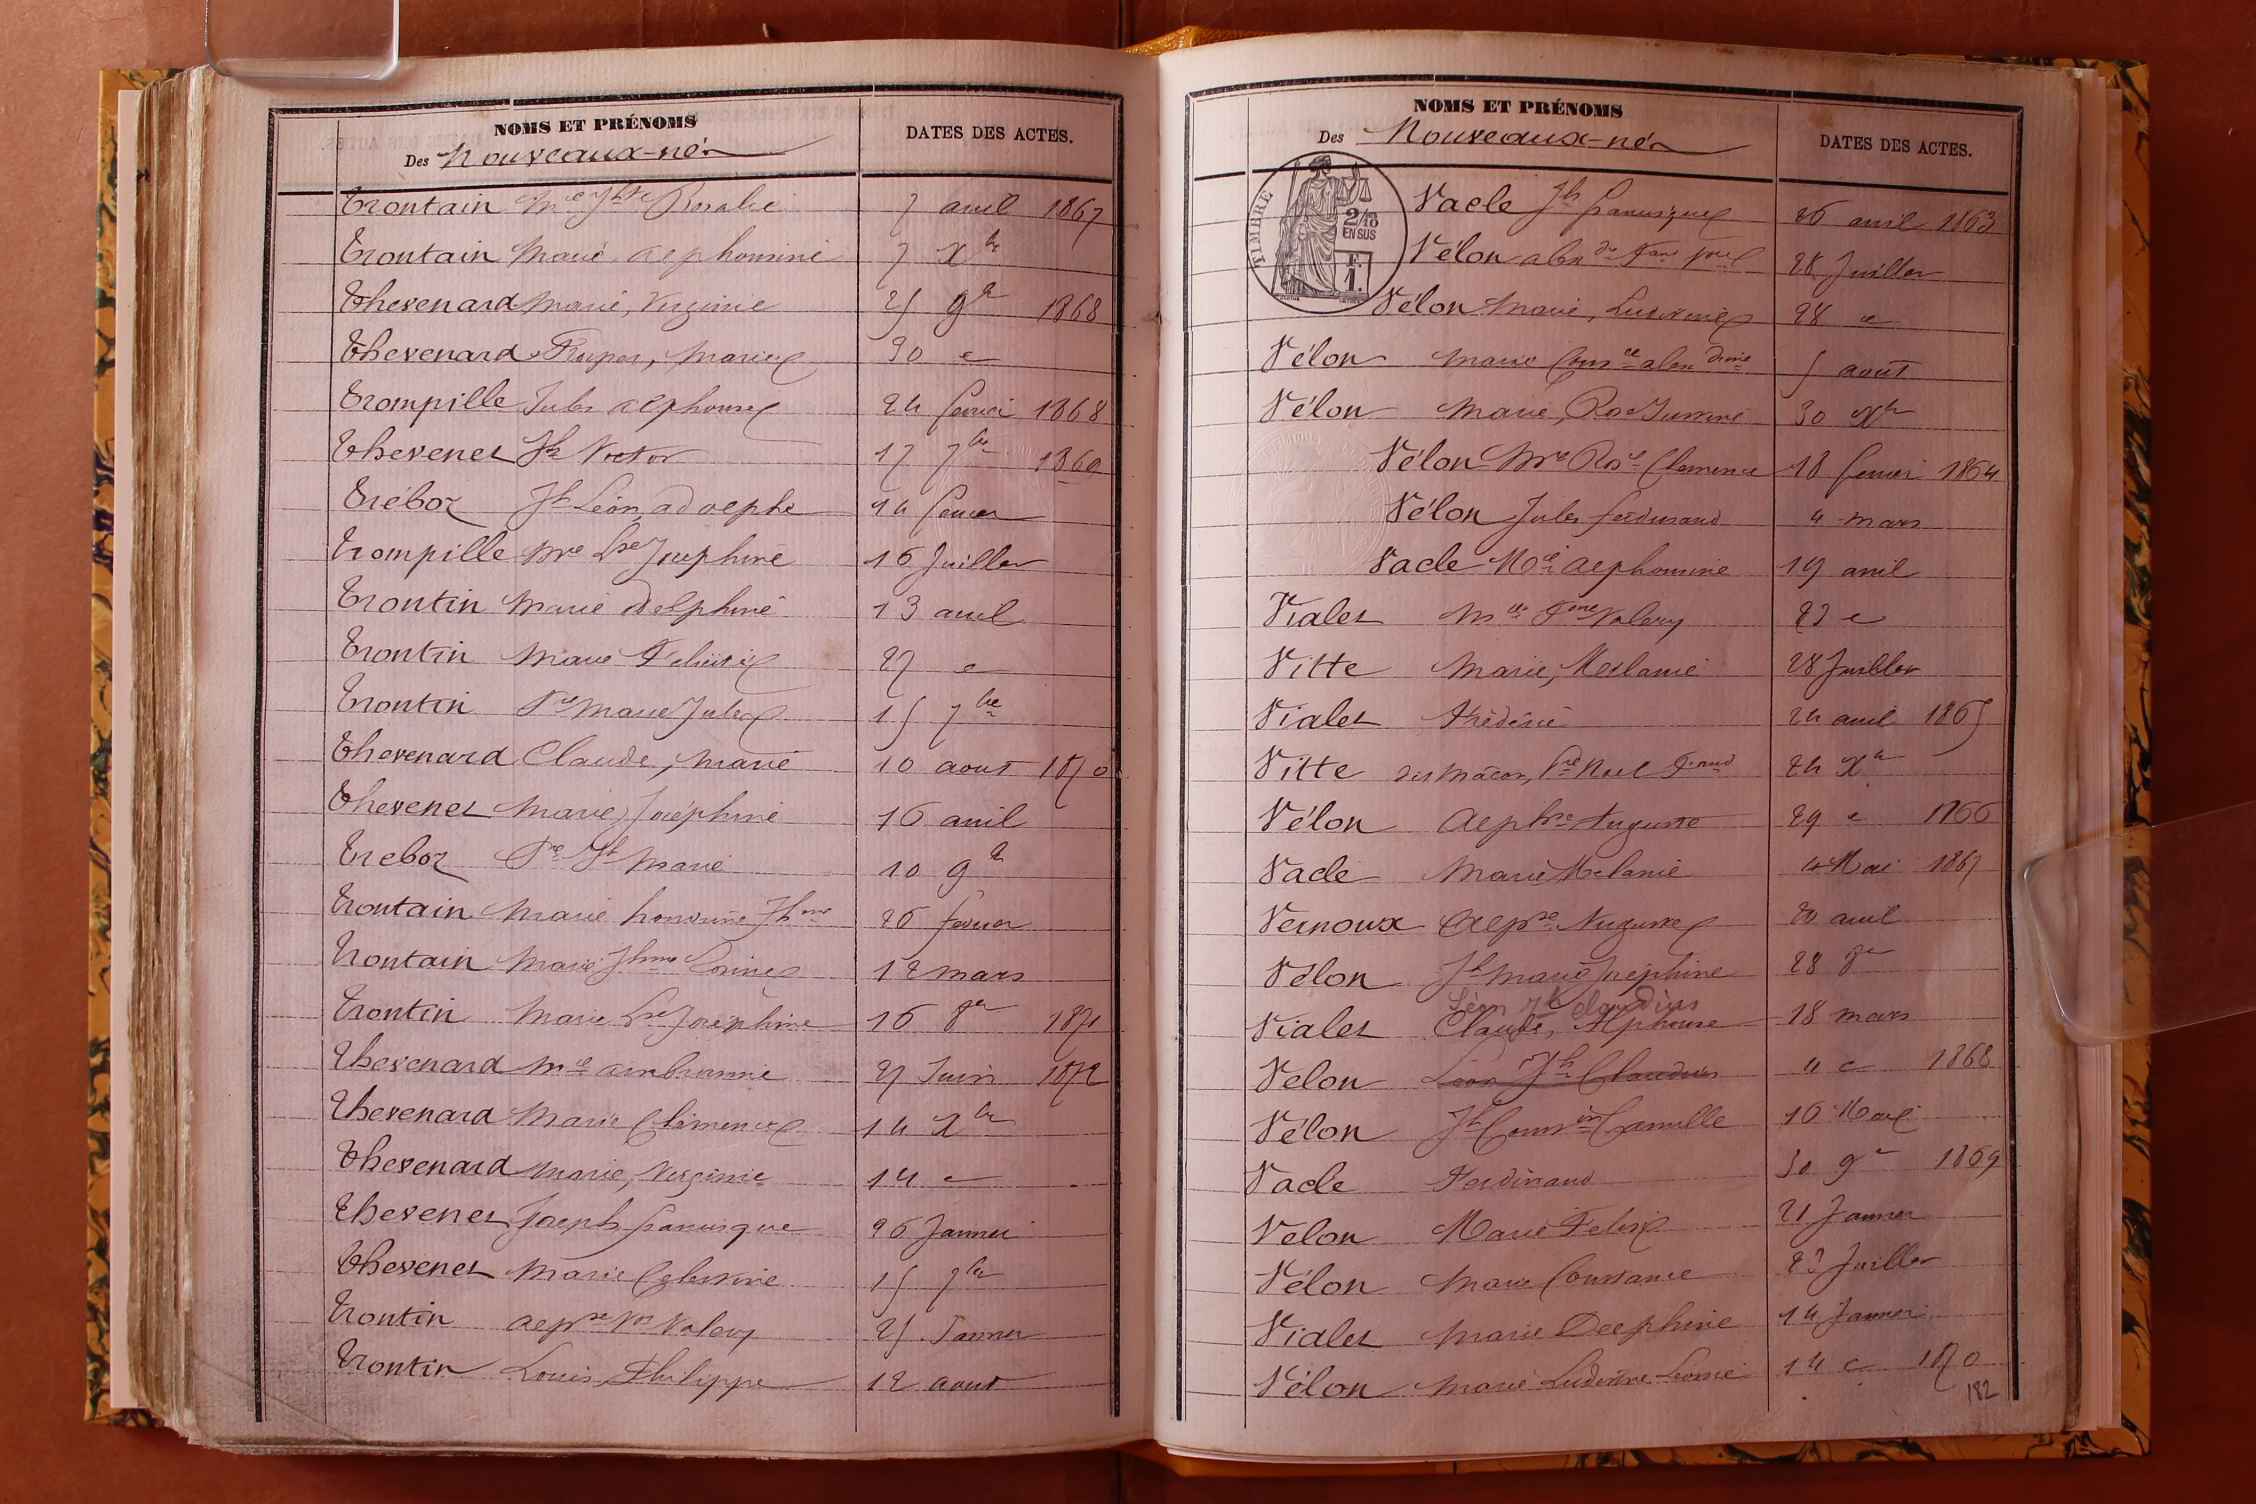 NOMS ET PRÉNOMS
Des Nouveaux-nés
DATES DES ACTES.
Trontain Mie Jhte Rosalie 7 avril 1867
Trontain Marie Alphonsine 7 Xbre
Thevenard Marie, Virginie 25 9bre 1868
Thevenard Marie 30 d
Trompille Jules Alphonse 24 fevrier 1868
Thevenet Jh Victor 17 7bre 1869
Tréboz Jh Léon, Adolphe 14 fevrier
Trompille Mie Lse Josephine 16 Juillet
Trontin Marie Delphine 13 avril
Trontin Marie Felicité 27 d
Trontin Marie Jules 15 7bre
Thevenard Claude, Marie 10 aout 1870
Thevenet Marie Joséphine 16 avril
Treboz Jh Marie 10 9bre
Trontain Marie honorine 26 fevrier
Trontain Marie 12 mars
Trontin Marie Lse Joséphine 16 8bre 1871
Thevenard Mie Ambroisine 27 Juin 1872
Thevenard Marie Clémence 14 Xbre
Thevenard Marie, Virginie 14 d
Thevenet Joseph francisque 26 Janvier
Thevenet Marie Célestine 15 7bre
Trontin Alpse Valery 25 Janvier
Trontin Louis, Philippe 12 aout
NOMS ET PRÉNOMS
Des Nouveaux-nés
DATES DES ACTES.
TIMBRE
2/10
EN SUS
F.
1.
Vacle Jh francisque 26 avril 1863
Vélon 28 Juillet
Vélon Marie, 28 d
Vélon Marie 5 aout
Vélon Marie, 30 Xbre
Vélon Mie Rose Clemence 18 fevrier 1864
Vélon Jules ferdinand 4 mars
Vacle Mie Alphonsine 19 avril
Vialet Valery 23 d
Vitte Marie, Mélanie 28 Juillet
Vialet Frédéric 24 avril 1865
Vitte 24 Xbre
Vélon Alphse Auguste 29 d 1866
Vacle Marie Mélanie 4 Mai 1867
Vernoux Alpse Auguste 20 avril
Vélon Jh Marie Joséphine 28 8bre
Léon Jh Claudius
Vialet Claude, Alphonse 18 mars
Velon Léon Jh Claudius 4 d 1868
Vélon Jh Camille 16
Vacle Ferdinand 30 9bre 1869
Velon Marie Felix 21 Janvier
Vélon Marie Constance 23 Juillet
Vialet Marie Delphine 14 Janvier
Vélon Marie Ludivine Léonie 14 d 1870
182